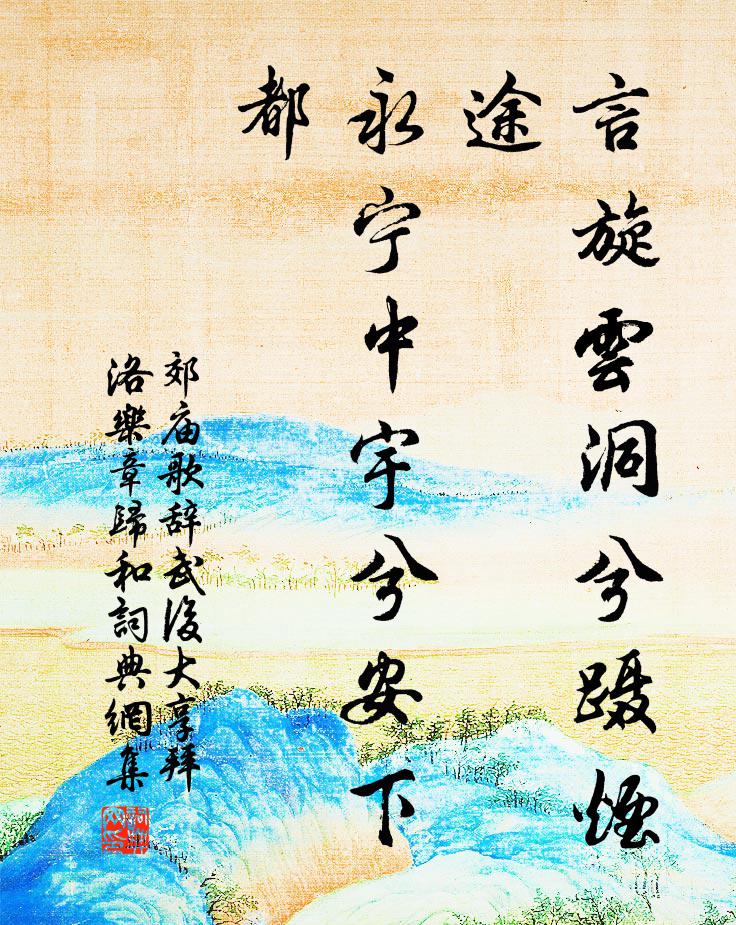 言旋雲洞兮躡煙
途
永宁中宇兮安下
都
郊庙歌辞武後大享拜
洛樂章歸和詞典網集